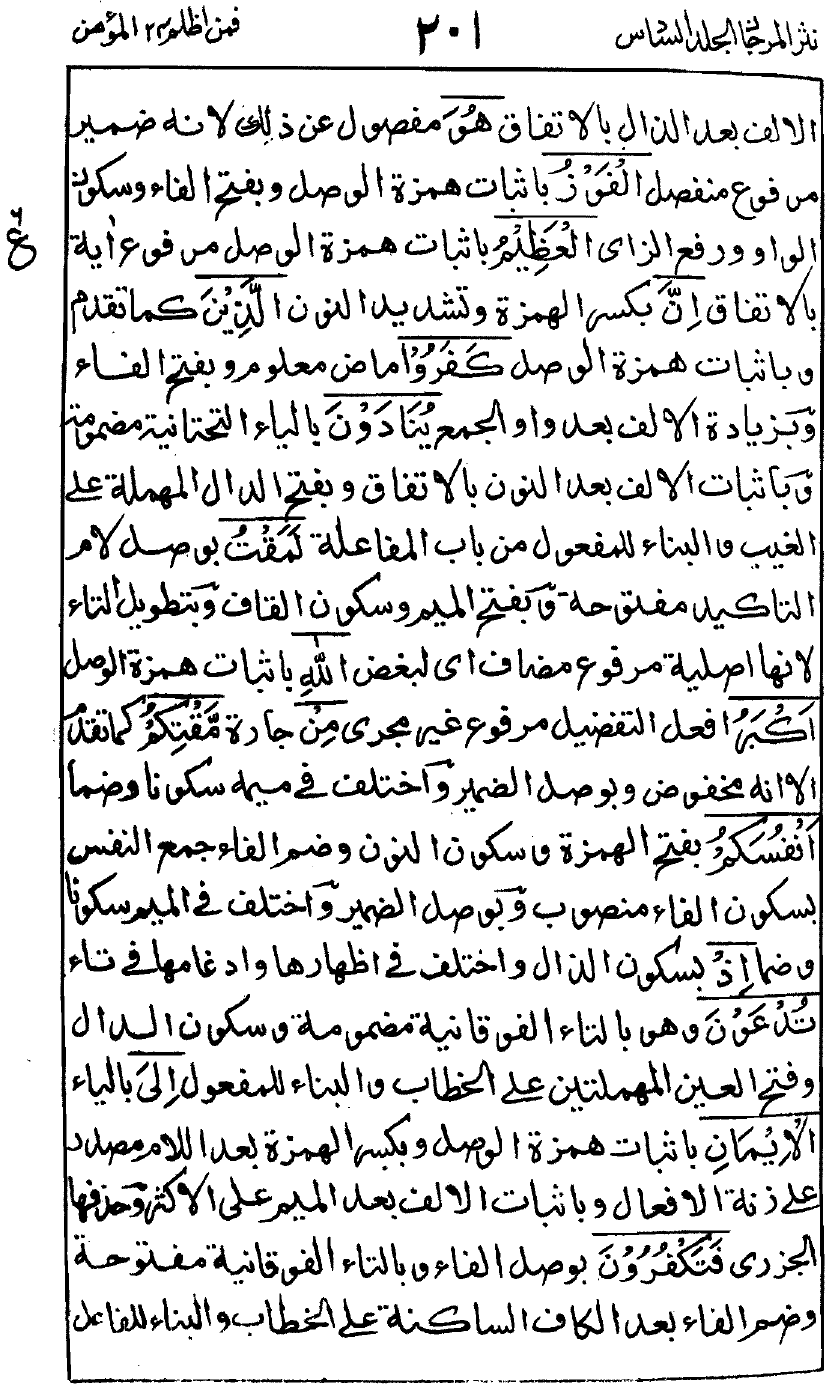 نثر المرجان الجلد السادس ٢٠١ فمن اظلم ٢٤ المؤمن
الالف بعد الذال بالاتفاق هُوَ مفصول عن ذلك لانه ضمير
مرفوع منفصل الْفَوْزُ باثبات همزة الوصل وبفتح الفاء وسكون
الواو ورفع الزاى الْعَظِيْمُ باثبات همزة الوصل مرفوع اٰية
بالاتفاق اِنَّ بكسر الهمزة وتشديد النون الَّذِيْنَ كما تقدم
وباثبات همزة الوصل كَفَرُوْا ماض معلوم وبفتح الفاء
وَبزيادة الالف بعد واو الجمع يُنَادَوْنَ بالياء التحتانية مضمومة
وَباثبات الالف بعد النون بالاتفاق وبفتح الدال المهملة على
الغيب والبناء للمفعول من باب المفاعلة لَمَقْتُ بوصل لام
التاكيد مفتوحة وَبفتح الميم وسكون القاف وَبتطويل التاء
لانها اصلية مرفوع مضاف اى لبغض اللّٰهِ باثبات همزة الوصل
اَكْبَرُ افعل التفضيل مرفوع غير مجرى مِنْ جارة مَّقْتِكُمْ كما تقدم
الا انه مخفوض وبوصل الضمير وَاختلف فى ميمه سكونا وضما
اَنْفُسَكُمْ بفتح الهمزة وسكون النون وضم الفاء جمع النفس
بسكون الفاء منصوب وَبوصل الضمير وَاختلف فى الميم سكونا
وضما اِذْ بسكون الذال واختلف فى اظهارها وادغامها فى تاء
تُدْعَوْنَ وهو بالتاء الفوقانية مضمومة وسكون الدال
وفتح العين المهملتين على الخطاب والبناء للمفعول اِلَى بالياء
الْاِيْمَانِ باثبات همزة الوصل وبكسر الهمزة بعد اللام مصدر
على زنة الافعال وباثبات الالف بعد الميم على الاكثر وَحذفها
الجزرى فَتَكْفُرُوْنَ بوصل الفاء وبالتاء الفوقانية مفتوحة
وضم الفاء بعد الكاف الساكنة على الخطاب والبناء للفاعل